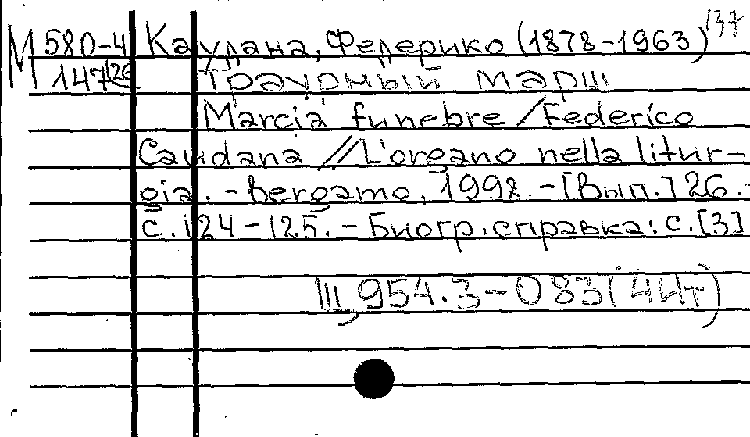 137
М 580-4 Каудана, Федерико (1878-1963)
147/26 Траурный марш
Marcia funebre / Federico
Caudana // L'organo nella litur-
gia. - Bergamo, 1998. - [Вып.] 26. -
с. 124-125. - Биогр. справка: с. [3]
Щ954.3-083(4Ит)